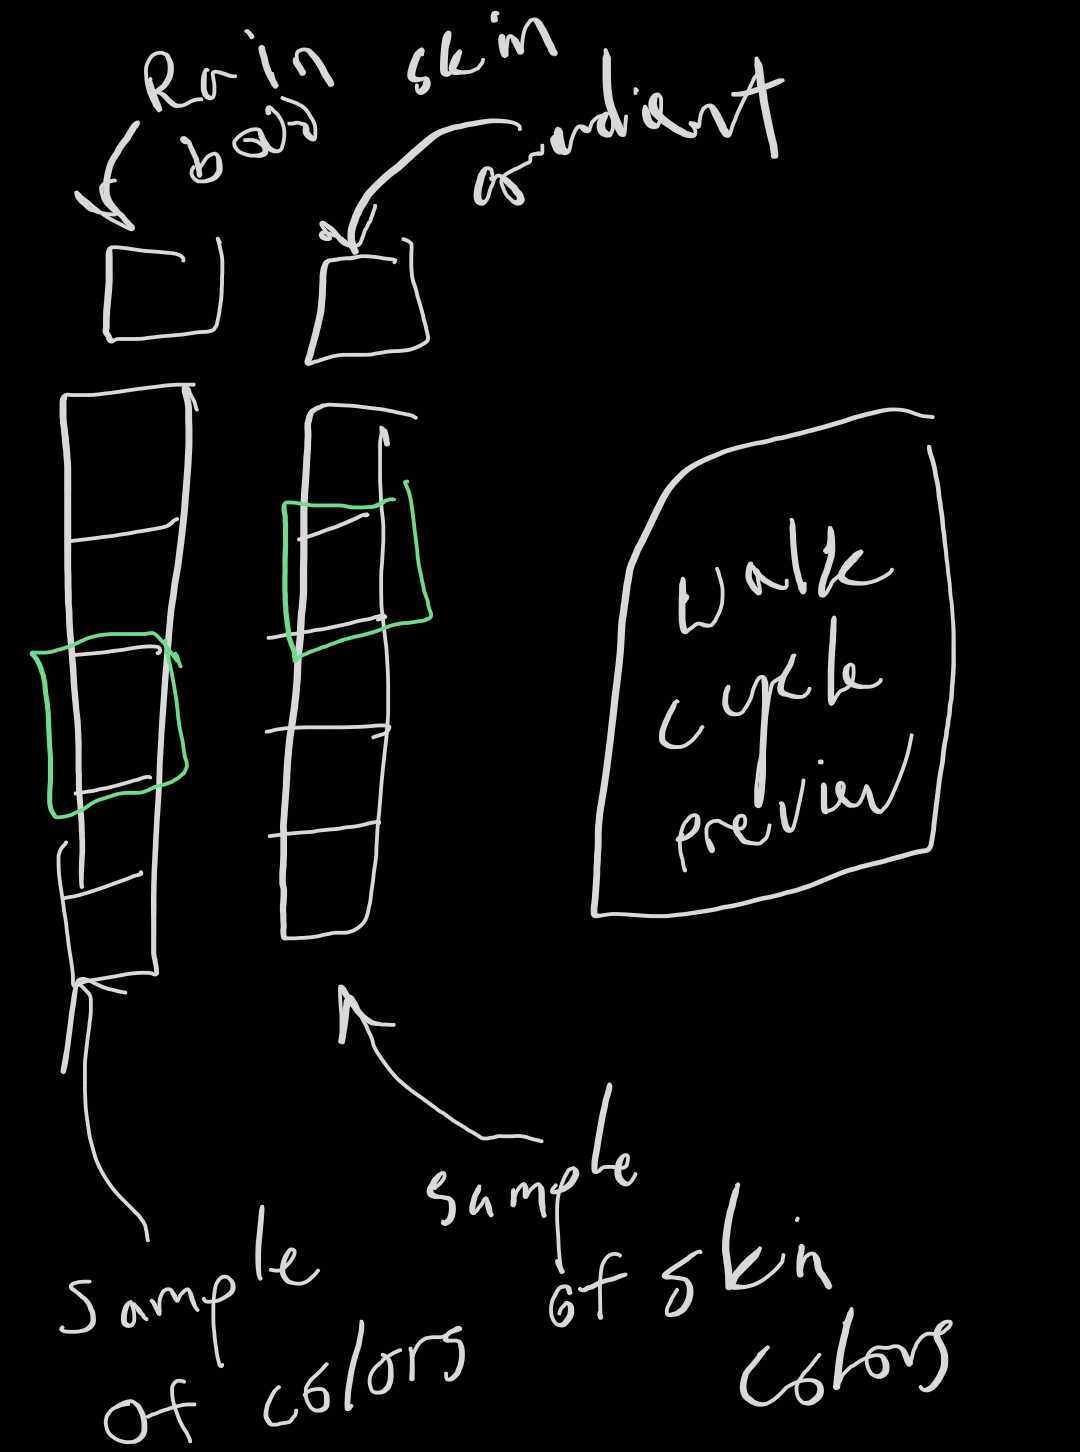 Rain
bow
skin
gradient
walk
cycle
preview
sample
of skin
colors
sample
of colors